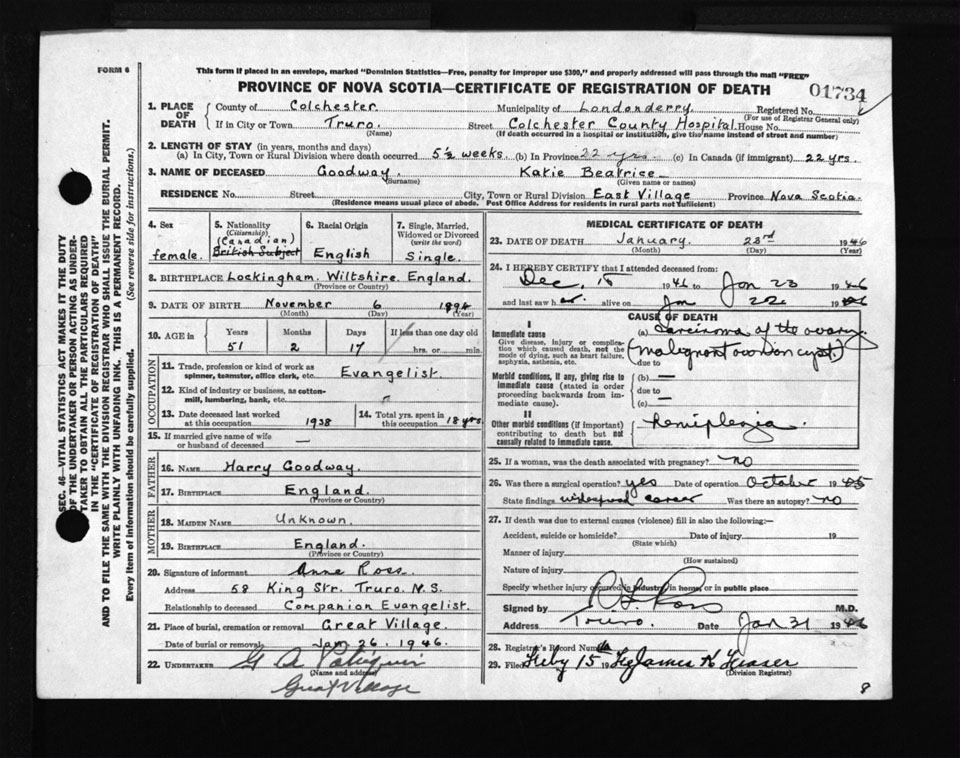 FORM 6
This form if placed in an envelope, marked "Dominion Statistics—Free, penalty for improper use $300," and properly addressed will pass through the mail "FREE"
PROVINCE OF NOVA SCOTIA—CERTIFICATE OF REGISTRATION OF DEATH
01734
SEC. 46—VITAL STATISTICS ACT MAKES IT THE DUTY
OF THE UNDERTAKER OR PERSON ACTING AS UNDER-
TAKER TO OBTAIN ALL THE PARTICULARS REQUIRED
IN THE "CERTIFICATE OF REGISTRATION OF DEATH"
AND TO FILE THE SAME WITH THE DIVISION REGISTRAR WHO SHALL ISSUE THE BURIAL PERMIT.
WRITE PLAINLY WITH UNFADING INK. THIS IS A PERMANENT RECORD.
Every item of information should be carefully supplied. (See reverse side for instructions.)
1. PLACE OF DEATH
County of Colchester. Municipality of Londonderry. Registered No.
(For use of Registrar General only)
If in City or Town Truro. Street Colchester County Hospital. House No.
(Name) (If death occurred in a hospital or institution, give the name instead of street and number)
2. LENGTH OF STAY (in years, months and days)
(a) In City, Town or Rural Division where death occurred 5½ weeks. (b) In Province 22 yrs. (c) In Canada (if immigrant) 22 yrs.
3. NAME OF DECEASED Goodway. Katie Beatrice
(Surname) (Given name or names)
RESIDENCE No. Street City, Town or Rural Division East Village Province Nova Scotia.
(Residence means usual place of abode. Post Office Address for residents in rural parts not sufficient)
4. Sex
female.
5. Nationality (Citizenship)
(Canadian)
British Subject
6. Racial Origin
English
7. Single, Married, Widowed or Divorced (write the word)
Single.
8. BIRTHPLACE Lockingham. Wiltshire. England.
(Province or Country)
9. DATE OF BIRTH November 6 1894
(Month) (Day) (Year)
10. AGE in Years Months Days If less than one day old
51 2 17 hrs. or min.
OCCUPATION
11. Trade, profession or kind of work as spinner, teamster, office clerk, etc. Evangelist.
12. Kind of industry or business, as cotton-mill, lumbering, bank, etc.
13. Date deceased last worked at this occupation 1938
14. Total yrs. spent in this occupation 18 yrs.
15. If married give name of wife or husband of deceased —
FATHER
16. NAME Harry Goodway.
17. BIRTHPLACE England.
(Province or Country)
MOTHER
18. MAIDEN NAME Unknown.
19. BIRTHPLACE England.
(Province or Country)
20. Signature of informant Anne Ross.
Address 58 King Str. Truro. N.S.
Relationship to deceased Companion Evangelist.
21. Place of burial, cremation or removal Great Village.
Date of burial or removal Jan 26. 1946.
22. UNDERTAKER G A
(Name and address)
Great Village
MEDICAL CERTIFICATE OF DEATH
23. DATE OF DEATH January. 23rd 1946
(Month) (Day) (Year)
24. I HEREBY CERTIFY that I attended deceased from:
Dec, 15 1946 to Jan 23 1946
and last saw her alive on Jan 22 1946
CAUSE OF DEATH
I
Immediate cause
Give disease, injury or complication which caused death, not the mode of dying, such as heart failure, asphyxia, asthenia, etc.
(a) Carcinoma of the ovary
(malignant ovarian cyst.)
due to
Morbid conditions, if any, giving rise to immediate cause (stated in order proceeding backwards from immediate cause).
(b) —
due to
(c) —
II
Other morbid conditions (if important) contributing to death but not causally related to immediate cause.
Hemiplegia.
25. If a woman, was the death associated with pregnancy? no
26. Was there a surgical operation? yes Date of operation October 1945
State findings widespread cancer Was there an autopsy? no
27. If death was due to external causes (violence) fill in also the following:—
Accident, suicide or homicide? Date of injury 19
(State which)
Manner of injury
(How sustained)
Nature of injury
Specify whether injury occurred in industry, in home, or in public place
Signed by Ross M.D.
Address Truro. Date Jan 31 1946
28. Registrar's Record Number
29. Filed Feby 15 19 James K Fraser
(Division Registrar)
8